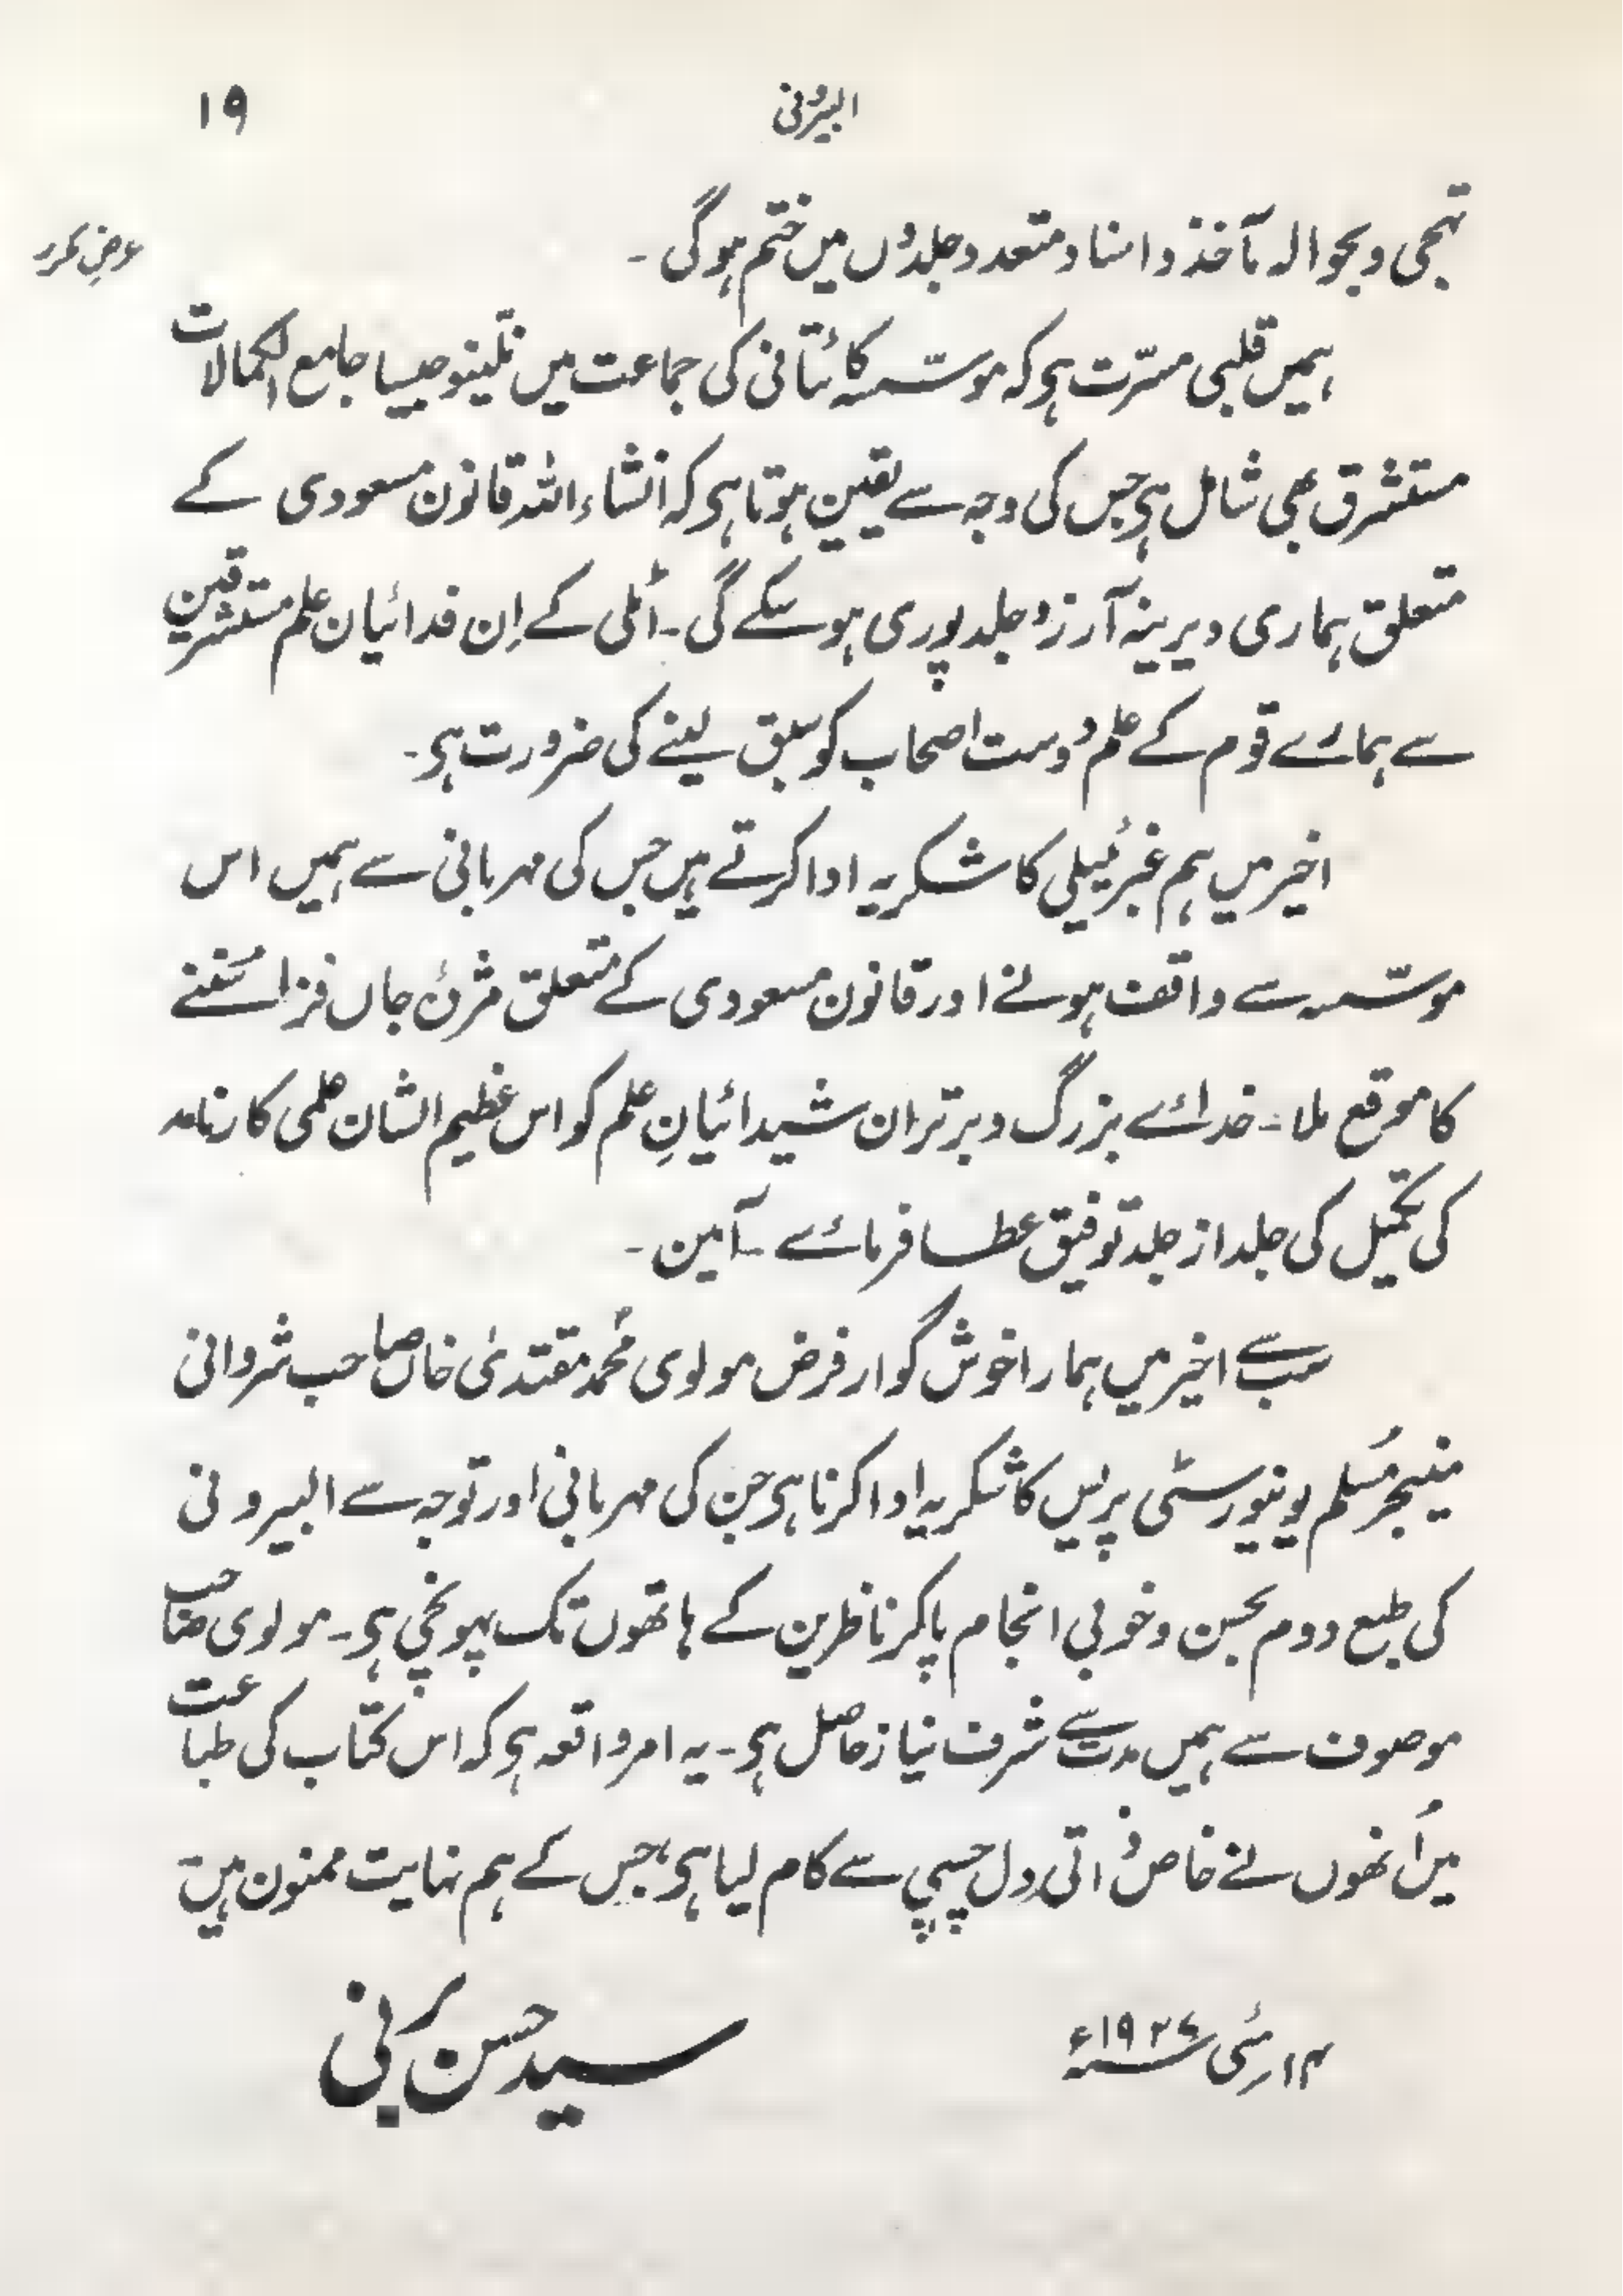 البیرونی ۱۹
عرض مکرر
تہجی و بحوالہ مآخذ و اسناد متعدد جلدوں میں ختم ہوگی ۔
ہمیں قلبی مسرّت ہی کہ موسّسہ کائتانی کی جماعت میں نلینو جیسا جامع الکمالات
مستشرق بھی شامل ہی جس کی وجہ سے یقین ہوتا ہی کہ انشاء اللہ قانون مسعودی کے
متعلق ہماری دیرینہ آرزو جلد پوری ہوسکے گی ۔ اٹلی کے اِن فدائیان علم مستشرقین
سے ہمارے قوم کے علم دوست اصحاب کو سبق لینے کی ضرورت ہی ۔
اخیر میں ہم غبرئیلی کا شکریہ ادا کرتے ہیں جس کی مہربانی سے ہمیں اس
موسّسہ سے واقف ہونے اور قانون مسعودی کے متعلق مژدۂ جاں فزا سُننے
کا موقع ملا ۔ خدائے بزرگ و برتر ان شیدائیانِ علم کو اس عظیم الشان علمی کارنامہ
کی تکمیل کی جلد از جلد توفیق عطا فرمائے ۔ آمین ۔
سب سے اخیر میں ہمارا خوش گوار فرض مولوی محمد مقتدیٰ خاں صاحب شروانی
منیجر مُسلم یونیورسٹی پریس کا شکریہ ادا کرنا ہی جن کی مہربانی اور توجہ سے البیرونی
کی طبع دوم بحسن و خوبی انجام پاکر ناظرین کے ہاتھوں تک پہونچی ہی ۔ مولوی صاحب
موصوف سے ہمیں مدت سے شرف نیاز حاصل ہی ۔ یہ امر واقعہ ہی کہ اس کتاب کی طباعت
میں اُنھوں نے خاص ذاتی دل چسپی سے کام لیا ہی، جس کے ہم نہایت ممنون ہیں
۱۴ مئی ۱۹۲۷ء سید حسن برنی